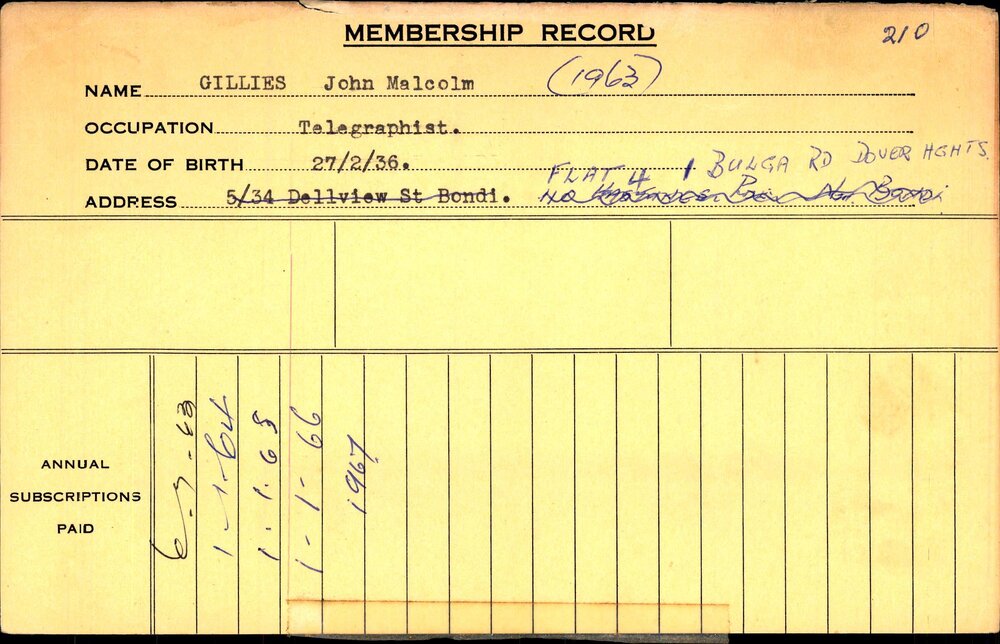 MEMBERSHIP RECORD 210
NAME GILLIES John Malcolm (1963)
OCCUPATION Telegraphist.
DATE OF BIRTH 27/2/36. FLAT 4 1 BULGA RD DOVER HGHTS.
ADDRESS 5/34 Dellview St Bondi.
ANNUAL
SUBSCRIPTIONS
PAID
6-7-63
1-1-64
1.1.65
1-1-66
1967